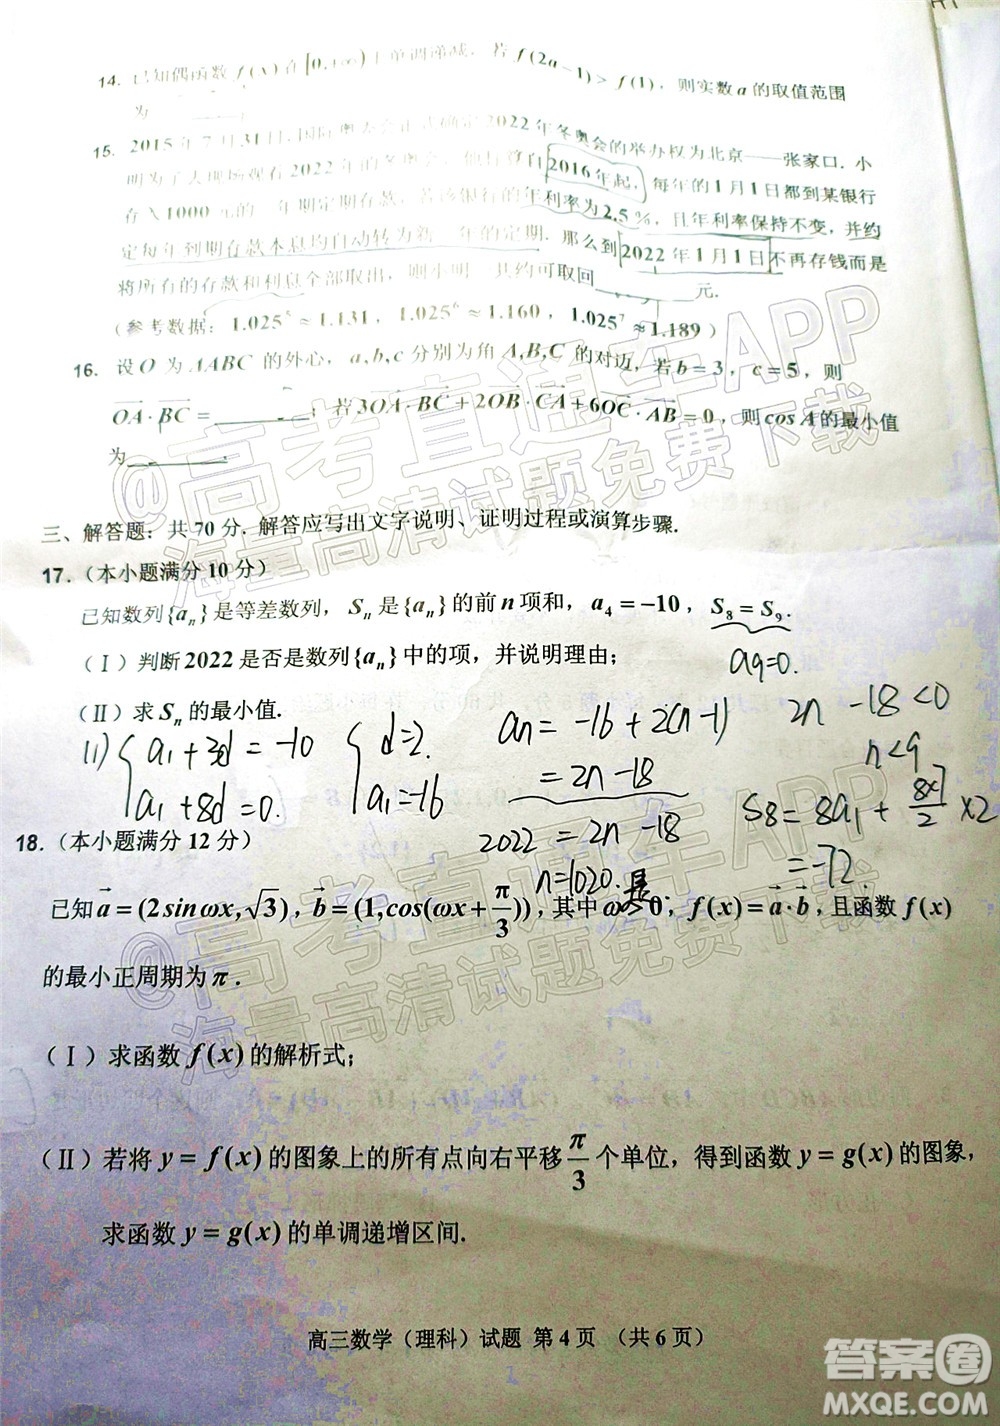 14. 已知偶函数 f(x) 在 [0,+∞) 上单调递减，若 f(2a-1)>f(1)，则实数a的取值范围
为
15. 2015年7月31日,国际奥委会正式确定2022年冬奥会的举办权为北京——张家口. 小
明为了去现场观看2022年的冬奥会，他打算自2016年起，每年的1月1日都到某银行
存入1000元的一年期定期存款，若该银行的年利率为2.5%，且年利率保持不变，并约
定每年到期存款本息均自动转为新一年的定期. 那么到2022年1月1日不再存钱而是
将所有的存款和利息全部取出，则小明一共约可取回________元.
(参考数据：1.025⁵≈1.131，1.025⁶≈1.160，1.025⁷≈1.189)
16. 设 O 为 △ABC 的外心，a,b,c 分别为角 A,B,C 的对边，若 b=3，c=5，则
OA·BC=________；若3OA·BC+2OB·CA+6OC·AB=0，则cos A的最小值
为________.
三、解答题：共70分. 解答应写出文字说明、证明过程或演算步骤.
17.（本小题满分10分）
已知数列{aₙ}是等差数列，Sₙ是{aₙ}的前n项和，a₄=-10，S₈=S₉.
a9=0.
(Ⅰ)判断2022是否是数列{aₙ}中的项，并说明理由；
(Ⅱ)求Sₙ的最小值.
(1) { a1+3d=-10 { d=2. an=-16+2(n-1) 2n-18<0
a1+8d=0. a1=-16 =2n-18 n<9
2022=2n-18 S8=8a1+8×7/2×2
n=1020. 是. =-72.
18.（本小题满分12分）
已知a=(2sinωx,√3)，b=(1,cos(ωx+π/3))，其中ω>0，f(x)=a·b，且函数f(x)
的最小正周期为π.
(Ⅰ)求函数f(x)的解析式；
(Ⅱ)若将y=f(x)的图象上的所有点向右平移π/3个单位，得到函数y=g(x)的图象，
求函数y=g(x)的单调递增区间.
高三数学（理科）试题 第4页 （共6页）
@高考直通车APP
海量高清试题免费下载
@高考直通车APP
海量高清试题免费下载
答案圈
MXQE.COM